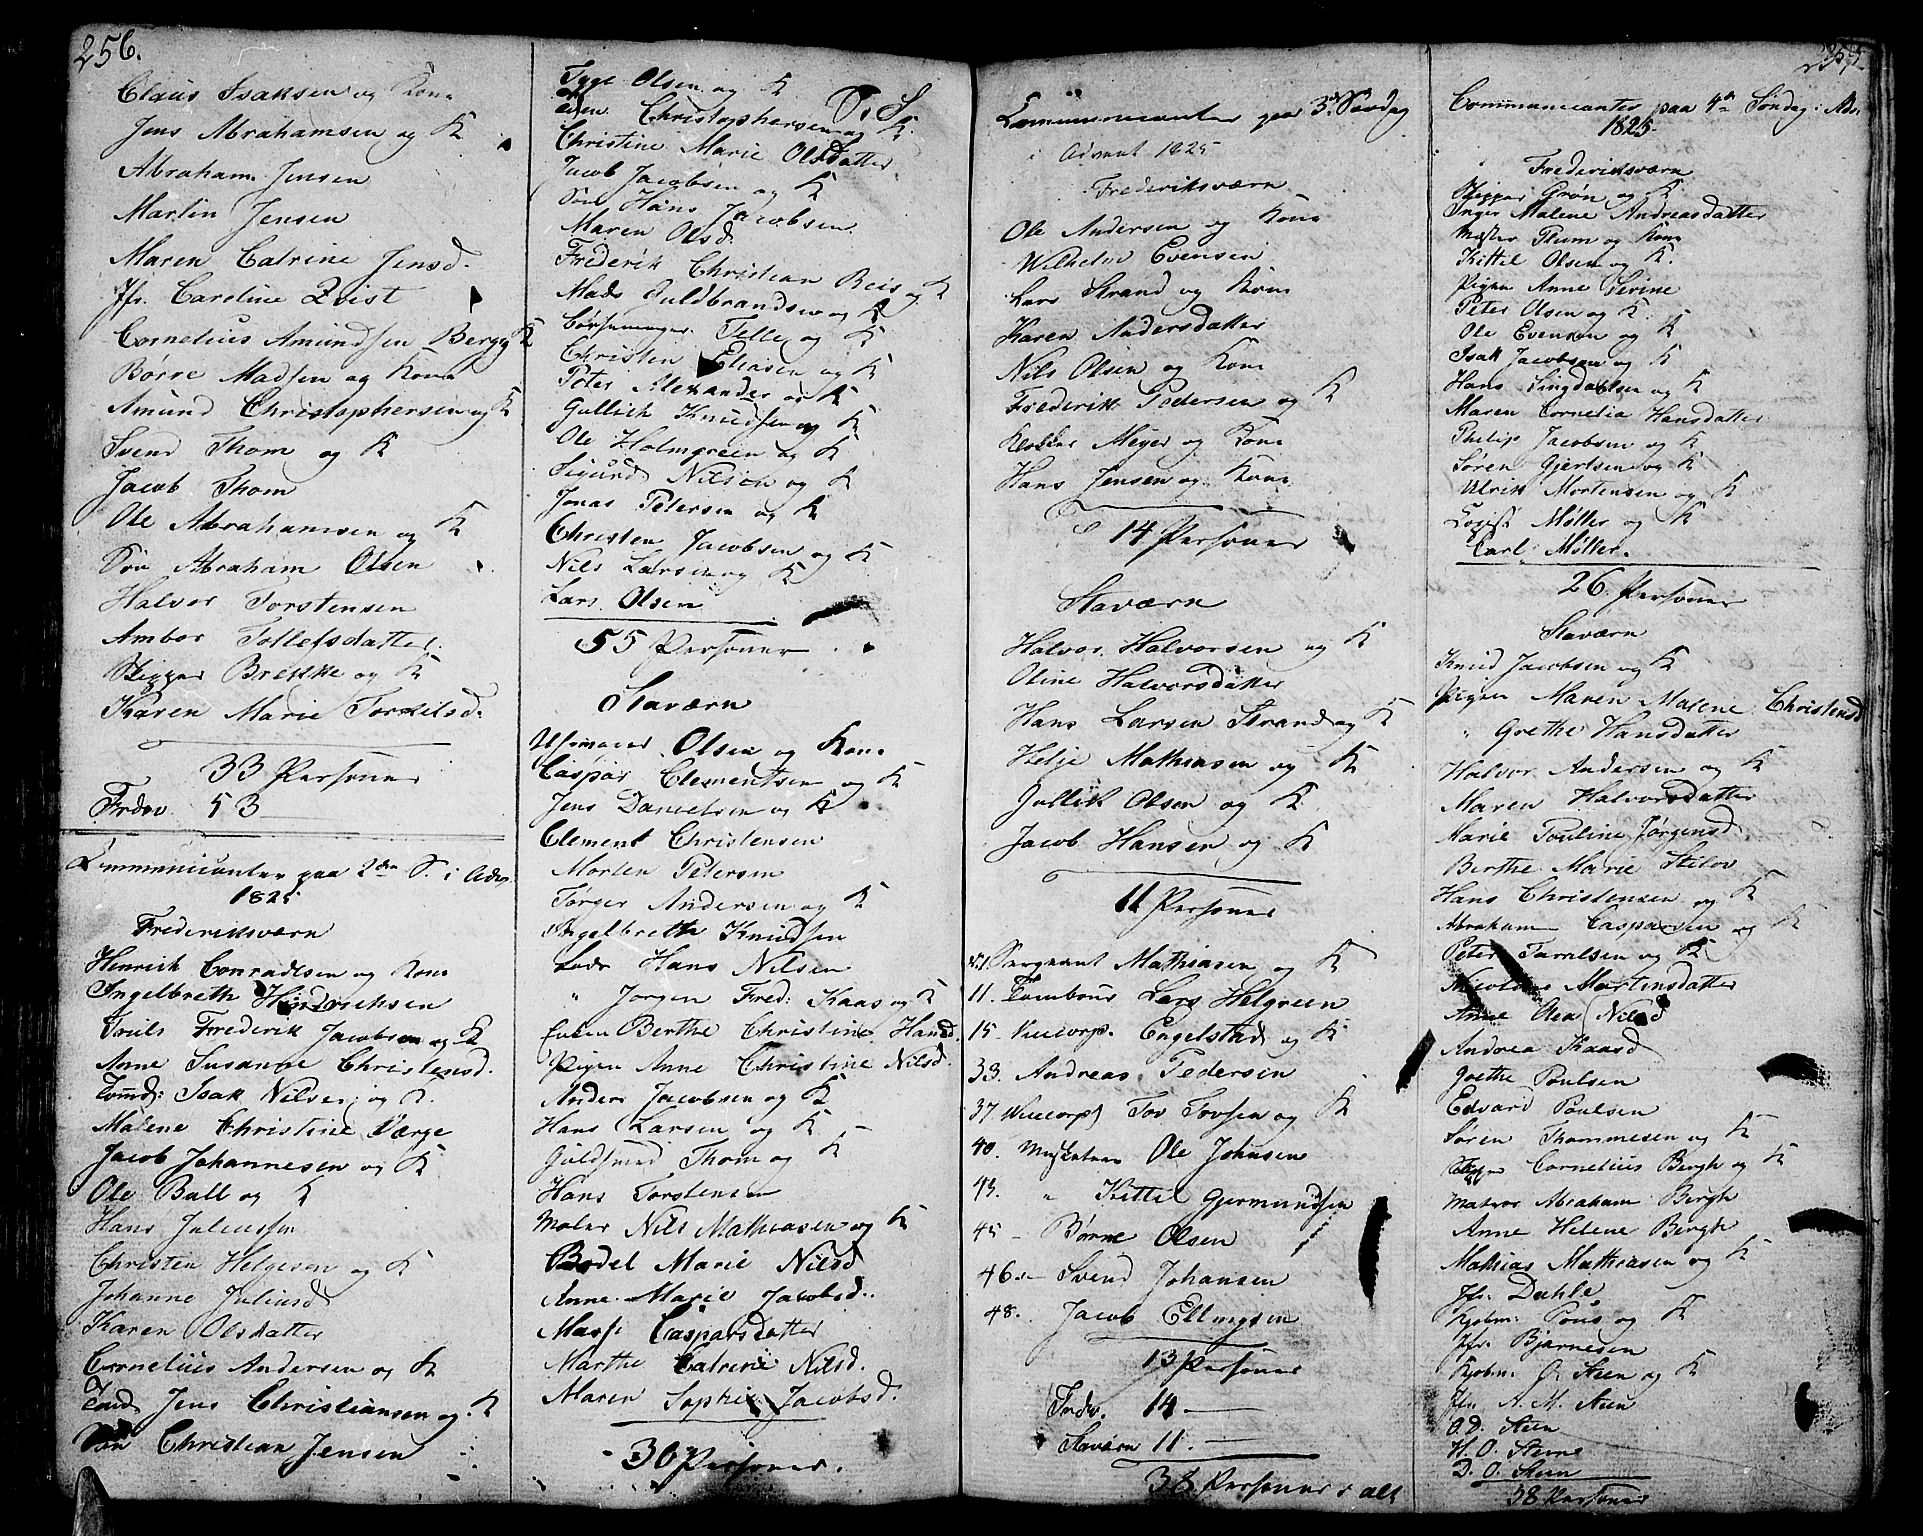 256.
Claus Isaksen og Kone
Jens Abrahamsen og K
Abraham Jensen
Martin Jensen
Maren Catrine Jensd.
Jfr. Caroline Qvist
Cornelius Amundsen Berg og K
Børre Madsen og Kone
Amund Christophersen og K
Svend Thom og K
Jacob Thom
Ole Abrahamsen og K
Søn Abraham Olsen
Halvor Torstensen
Ambor Tollefsdatter
Skipper Brekke og K
Karen Marie Torkilsd.
33 Personer
Frdv 53
Communicanter paa 2den S. i Adv.
1825
Frederiksværn
Henrich Conradsen og Kone
Ingelbreth Hindriksen
Troels Frederik Jacobsen og K
Anne Susanne Christensd.
Isak Nilsen og K.
Malene Christine Værge
Jacob Johannesen og K
Ole Ball og K
Hans Juliussen
Christen Helgesen og K
Johanne Juliusd
Karen Olsdatter
Cornelius Andersen og K
Jens Christiansen og K
Søn Christian Jensen
Tyge Olsen og K
Christophersen og K.
Christine Marie Olsdatter
Jacob Jacobsen og K
Søn Hans Jacobsen
Maren Olsd.
Frederik Christian Beis og K
Mads Guldbrandsen og K
Telle og K
Christen Eliasen og K
Peter Alexander og K
Gullich Knudsen og K
Ole Holmgreen og K
Sigurd Nilsøn og K
Jonas Petersen og K
Christen Jacobsen og K
Nils Larsen og K
Lars Olsen
55 Personer
Staværn
Olsen og Kone
Caspar Clementsen og K
Jens Danielsen og K
Clement Christensen
Morten Petersen
Tørger Andersen og K
Ingelbreth Knudsen
Lods Hans Nilsen
" Jørgen Fred: Kaas og K
Enken Berthe Christine Hansd.
Pigen Anne Christine Nilsd.
Anders Jacobsen og K
Hans Larsen og K
Guldsmed Thom og K
Hans Torstensen
Maler Nils Mathiasen og K
Bodel Marie Nilsd
Anne Marie Jacobsd.
Masse Caspersdatter
Marthe Catrine Nilsd.
Maren Sophie Jacobsd.
30 Personer.
Communicanter paa 3die Søndag
i Advent 1825
Frederiksværn
Ole Andersen og Kone
Wilhelm Evensen
Lars Strand og Kone
Karen Andersdatter
Nils Olsen og Kone
Frederik Pedersen og K
Klokker Meyer og Kone
Hans Jensen og Kone
14 Personer
Staværn
Halvor Halvorsen og K
Oline Halvorsdatter
Hans Larsen Strand og K
Helje Mathiasen og K
Gullik Olsen og K.
Jacob Hansen og K
11 Personer
Sergeant Mathiasen og K
11. Tambour Lars Helgreen
15 Vicecorp. Engelstad og K
33. Andreas Pedersen
37 Vicecorpl Tov Tovsen og K
40. Musketeer Ole Johnsen
43. " Kittil Gjermundsen
45 - Børre Olsen
46. - Svend Johansen
48. Jacob Ellingsen
13 Personer
Frdv. 14 -
Staværn 11. -
38 Personer i alt
257.
Communicanter paa 4de Søndag i Adv.
1825
Frederiksværn
Skipper Grøn og K
Inger Malene Andreasdatter
Mester Plum og Kone
Kittel Olsen og K.
Pigen Anne Sevine
Peter Olsen og K.
Ole Evensen og K
Isak Jacobsen og K
Hans Lingdahlsen og K
Maren Cornelia Hansdatter
Philip Jacobsen og K
Søren Gjertsen og K
Ulrik Mortensen og K
Møller og K
Carl Møller.
26 Personer
Staværn
Knud Jacobsen og K
Pigen Maren Malene Christensd
" Grethe Hansdatter
Halvor Andersen og K
Maren Halvorsdatter
Marie Pouline Jørgensd
Berthe Marie Skilov
Hans Christensen og K
Abraham Caspersen og K
Peter Tarrilsen og K
Nicoline Martinsdatter
Anne Olea Nilsd
Andrea Kaasd
Grethe Poulsen
Edvard Poulsen
Søren Thommesen og K
Skipper Cornelius Bergh og K
Matros Abraham Bergh
Anne Helene Bergh
Mathias Mathiasen og K
Jfr. Dahle
Kjøbm: Pous og K
Jfr. Bjørnesen
Kjøbm: O. Steen og K
Jfr A. M. Steen
O. D. Steen
H. O. Steen
D. O. Steen
38 Personer